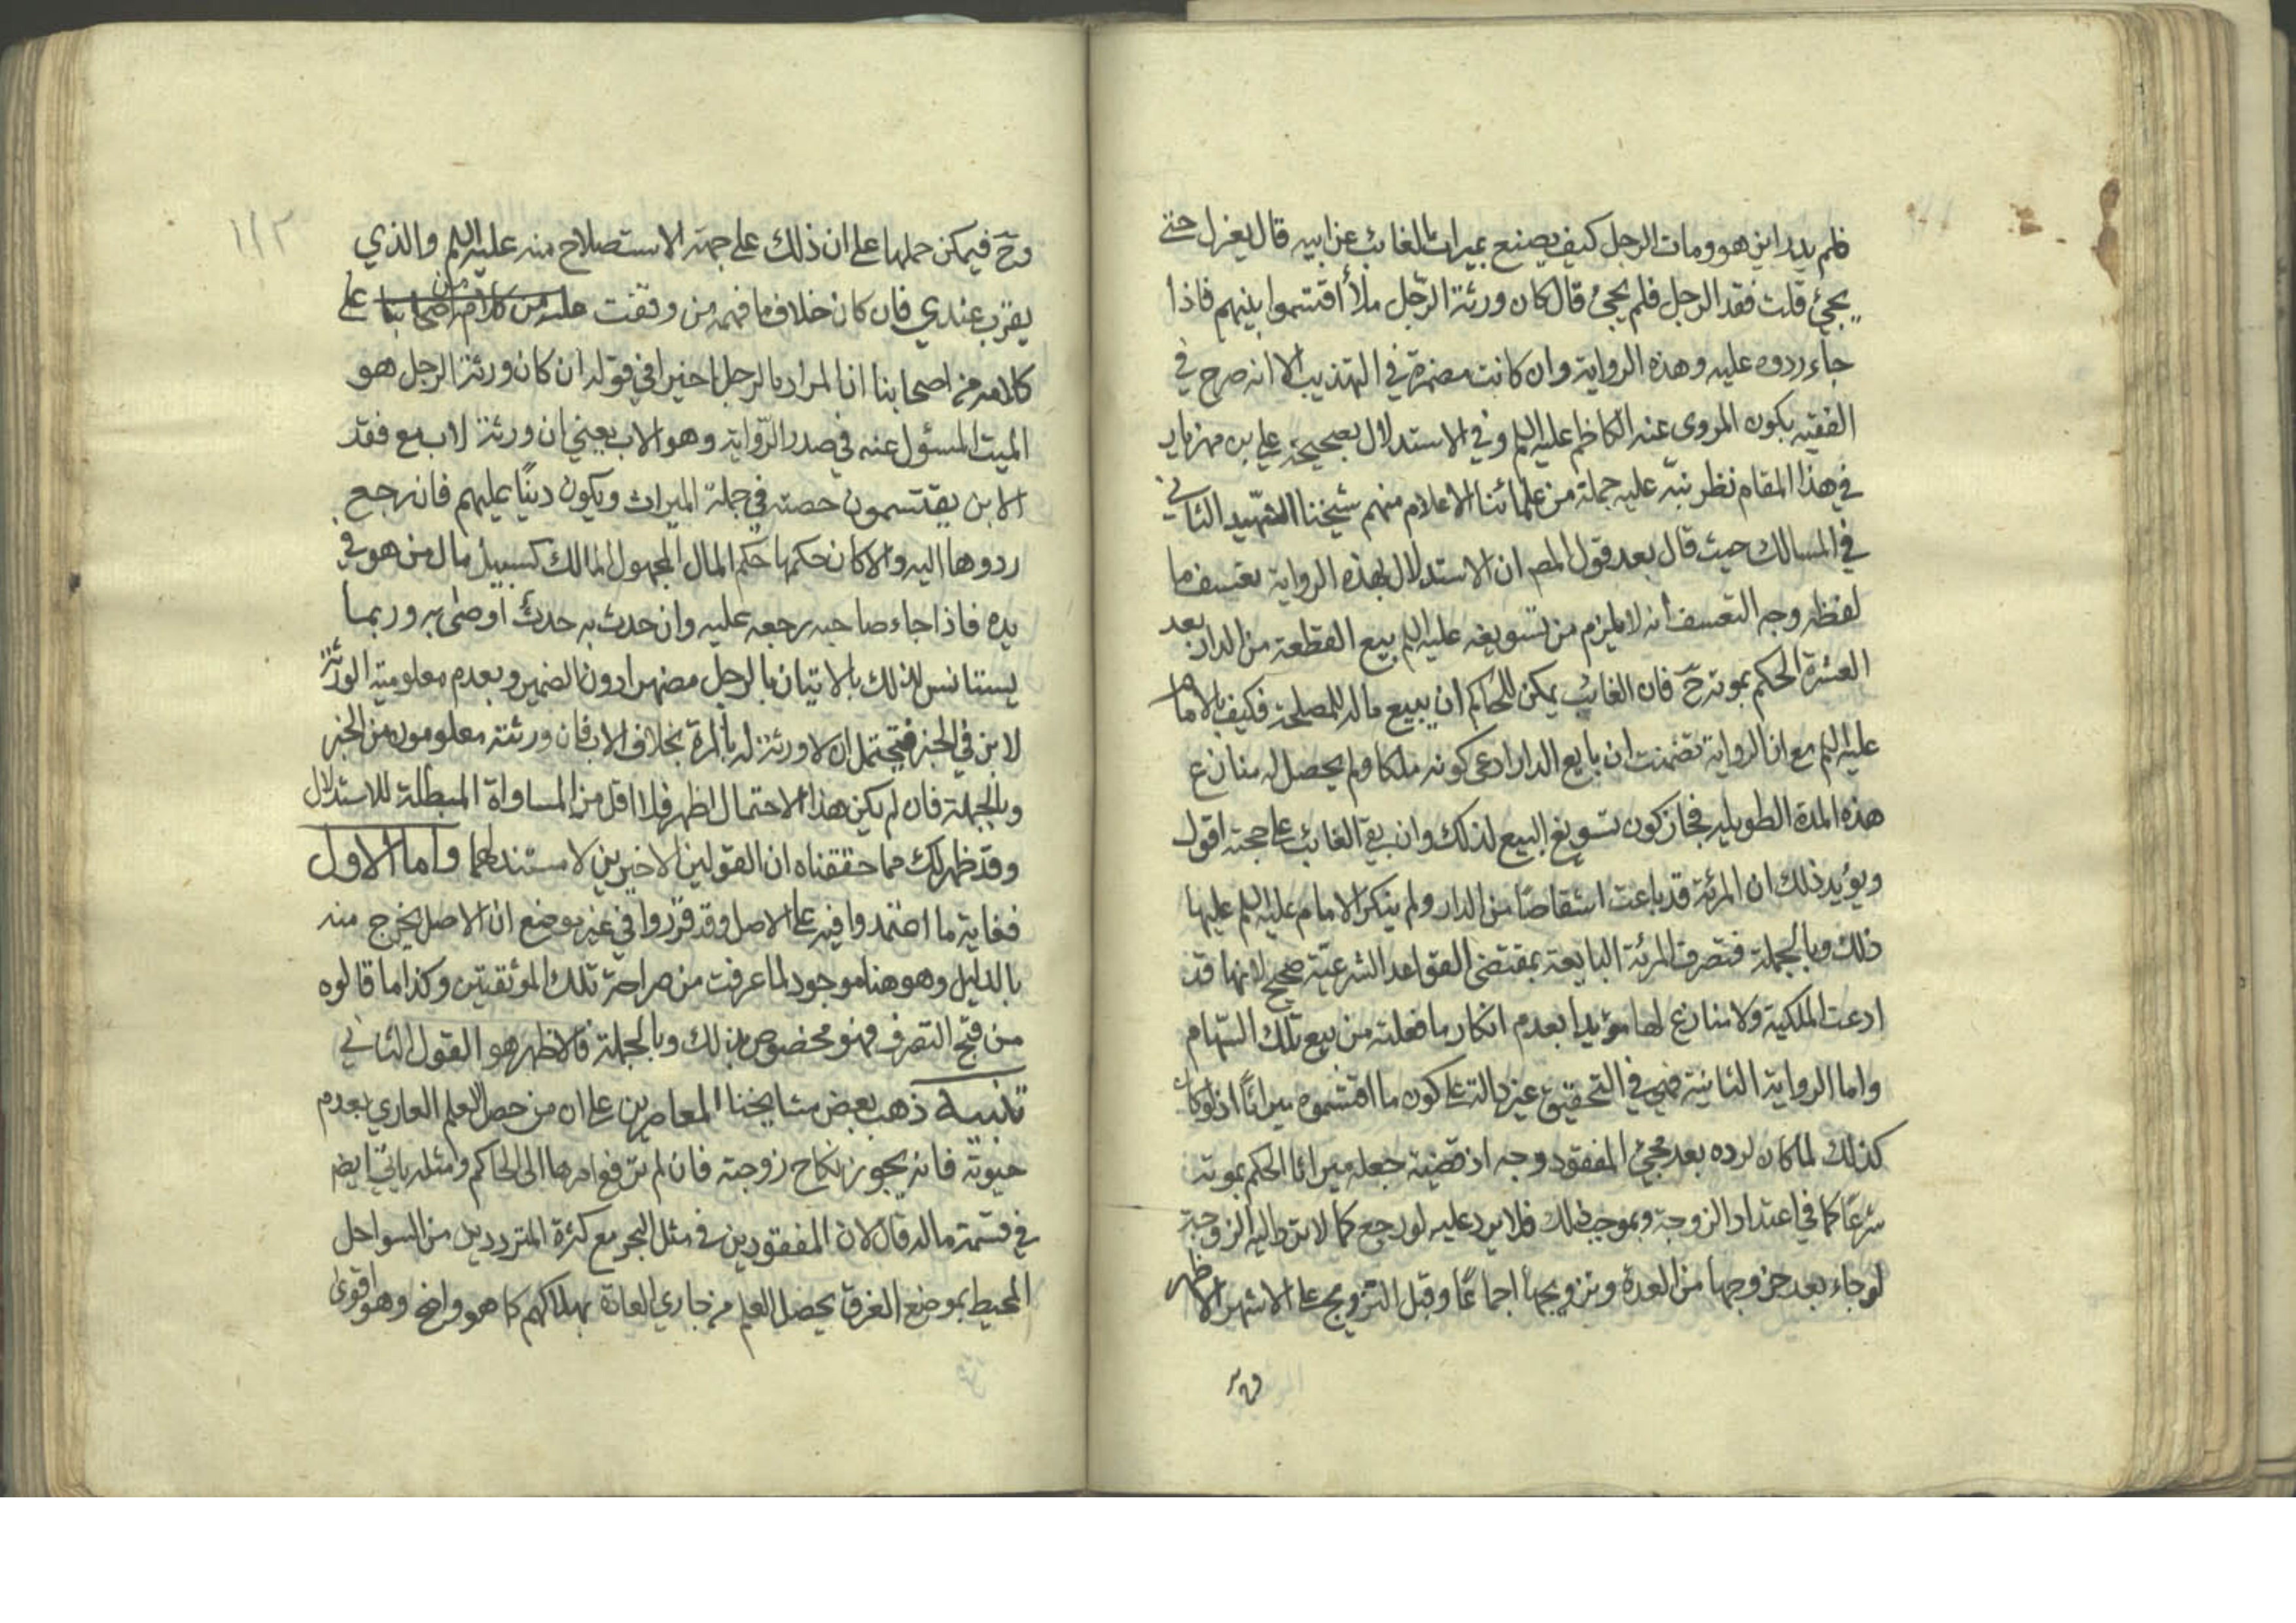 فلم يدر اين هو ومات الرجل كيف يصنع بميراث الغائب عن ابيه قال يعزل حتى
يجئ قلت فقد الرجل فلم يجئ قال كان ورثة الرجل ملأ اقتسموا بينهم فاذا
جاء ردوه عليه وهذه الرواية وان كانت مضمرة في التهذيب الا انه صرح في
الفقيه بكون المروى عنه الكاظم عليه السلم وفي الاستدلال بصحيحة علي بن مهزيار
في هذا المقام نظر نبّه عليه جملة من علمائنا الاعلام منهم شيخنا الشهيد الثاني
في المسالك حيث قال بعد قول المص ان الاستدلال بهذه الرواية تعسف ما
لفظه وجه التعسف انه لا يلزم من تسويغه عليه السلم بيع القطعة من الدار بعد
العشرة الحكم بموته حَ فان الغائب يمكن للحاكم ان يبيع ماله للمصلحة فكيف بالامام
عليه السلم مع ان الرواية تضمنت ان بايع الدار ادعى كونه ملكا ولم يحصل له منازع
هذه المدة الطويله فجاز كون تسويغ البيع لذلك وان بقى الغائب على حجته اقول
ويؤيد ذلك ان المرئة قد باعت اشقاصًا من الدار ولم ينكر الامام عليه السلم عليها
ذلك وبالجملة فتصرف المرئة البايعة بمقتضى القواعد الشرعية صحيح لانها قد
ادعت الملكية ولا منازع لها مؤيدا بعدم انكار ما فعلته من بيع تلك السّهام
واما الرواية الثانية فهي في التحقيق غير دالة على كون ما اقتسموه ميراثًا اذ لو كان
كذلك لما كان لرده بعد مجئ المفقود وجه اذ قضية جعله ميراثا الحكم بموته
شرعًا كما في اعتداد الزوجة وبموجب ذلك فلا يرد عليه لو رجع كما لا ترد اليه الزوجة
لو جاء بعد خروجها من العدة وتزويجها اجماعًا وقبل التزويج على الاشهر الاظهر
وحَ
وحَ فيمكن حملها على ان ذلك على جهة الاستصلاح منه عليه السلم والذي
يقرب عندي فان كان خلاف ما فهمه من وقفت على
كلامه من اصحابنا ان المراد بالرجل اخيرا في قوله ان كان ورثة الرجل هو
الميت المسؤل عنه في صدر الرّواية وهو الاب يعني ان ورثة الاب مع فقد
الابن يقتسمون حصته في جملة الميراث ويكون دينًا عليهم فان رجع
ردوها اليه والا كان حكمها حكم المال المجهول المالك كسبيل مال من هو في
يده فاذا جاء صاحبه رجعه عليه وان حدث به حدث اوصى به وربما
يستانس لذلك بالاتيان بالرجل مضهرا دون الضمير وبعدم معلومية الورثة
للابن في الخبر فيحتمل ان لا ورثة له بالمرة بخلاف الاب فان ورثته معلومون من الخبر
وبالجملة فان لم يكن هذا الاحتمال اظهر فلا اقل من المساواة المبطلة للاستدلال
وقد ظهر لك مما حققناه ان القولين الاخيرين لا مستند لهما واما الاول
فغاية ما اعتمدوا فيه على الاصل وقد قرّروا في غير موضع ان الاصل يخرج منه
بالدليل وهو هنا موجود لما عرفت من صراحة تلك الموثقتين وكذا ما قالوه
من قبح التصرف فهو مخصوص بذلك وبالجملة فالاظهر هو القول الثاني
تنبيه ذهب بعض مشايخنا المعاصرين على ان من حصل العلم العادي بعدم
حيوته فانه يجوز نكاح زوجته فان لم ترفع امرها الى الحاكم ومثله ياتي ايض
في قسمة ماله قال لان المفقودين في مثل البحر مع كثرة المترددين من السواحل
المحيط بموضع الغرق يحصل العلم من جاري العادة بهلاكهم كما هو واضح وهو اقوى